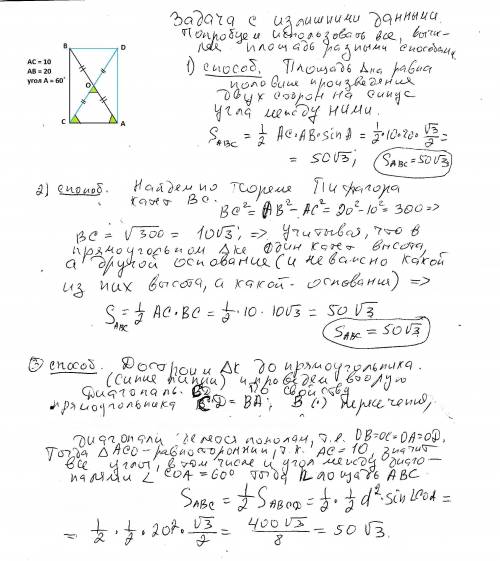 Задача с излишними данными.
Попробуем использовать все, вычис-
лив площадь разными способами.
B D
AC = 10
AB = 20
угол A = 60°
O
C A
1) способ. Площадь Δка равна
половине произведения
двух сторон на синус
угла между ними.
S_ABC = 1/2 AC·AB·sin A = 1/2·10·20·√3/2 =
= 50√3; S_ABC = 50√3
2) способ. Найдем по теореме Пифагора
катет BC.
BC² = AB² - AC² = 20² - 10² = 300 =>
BC = √300 = 10√3; => Учитывая, что в
прямоугольном Δке один катет высота,
а другой основание (и неважно какой
из них высота, а какой - основание) =>
S_ABC = 1/2 AC·BC = 1/2·10·10√3 = 50√3
S_ABC = 50√3
3) способ. Достроим ΔК до прямоугольника.
(синие линии) и проведем вторую
диагональ. CD По свойству
прямоугольника CD = BA; В (·) пересечения,
диагонали делятся пополам, т.е. OB=OC=OA=OD.
Тогда ΔACO - равносторонний, т.к. AC = 10, значит
все углы, в том числе и угол между диаго-
налями ∠COA = 60° тогда площадь ABC
S_ABC = 1/2 S_ABCD = 1/2·1/2 d²·sin∠COA =
= 1/2·1/2·20²·√3/2 = 400√3/8 = 50√3.